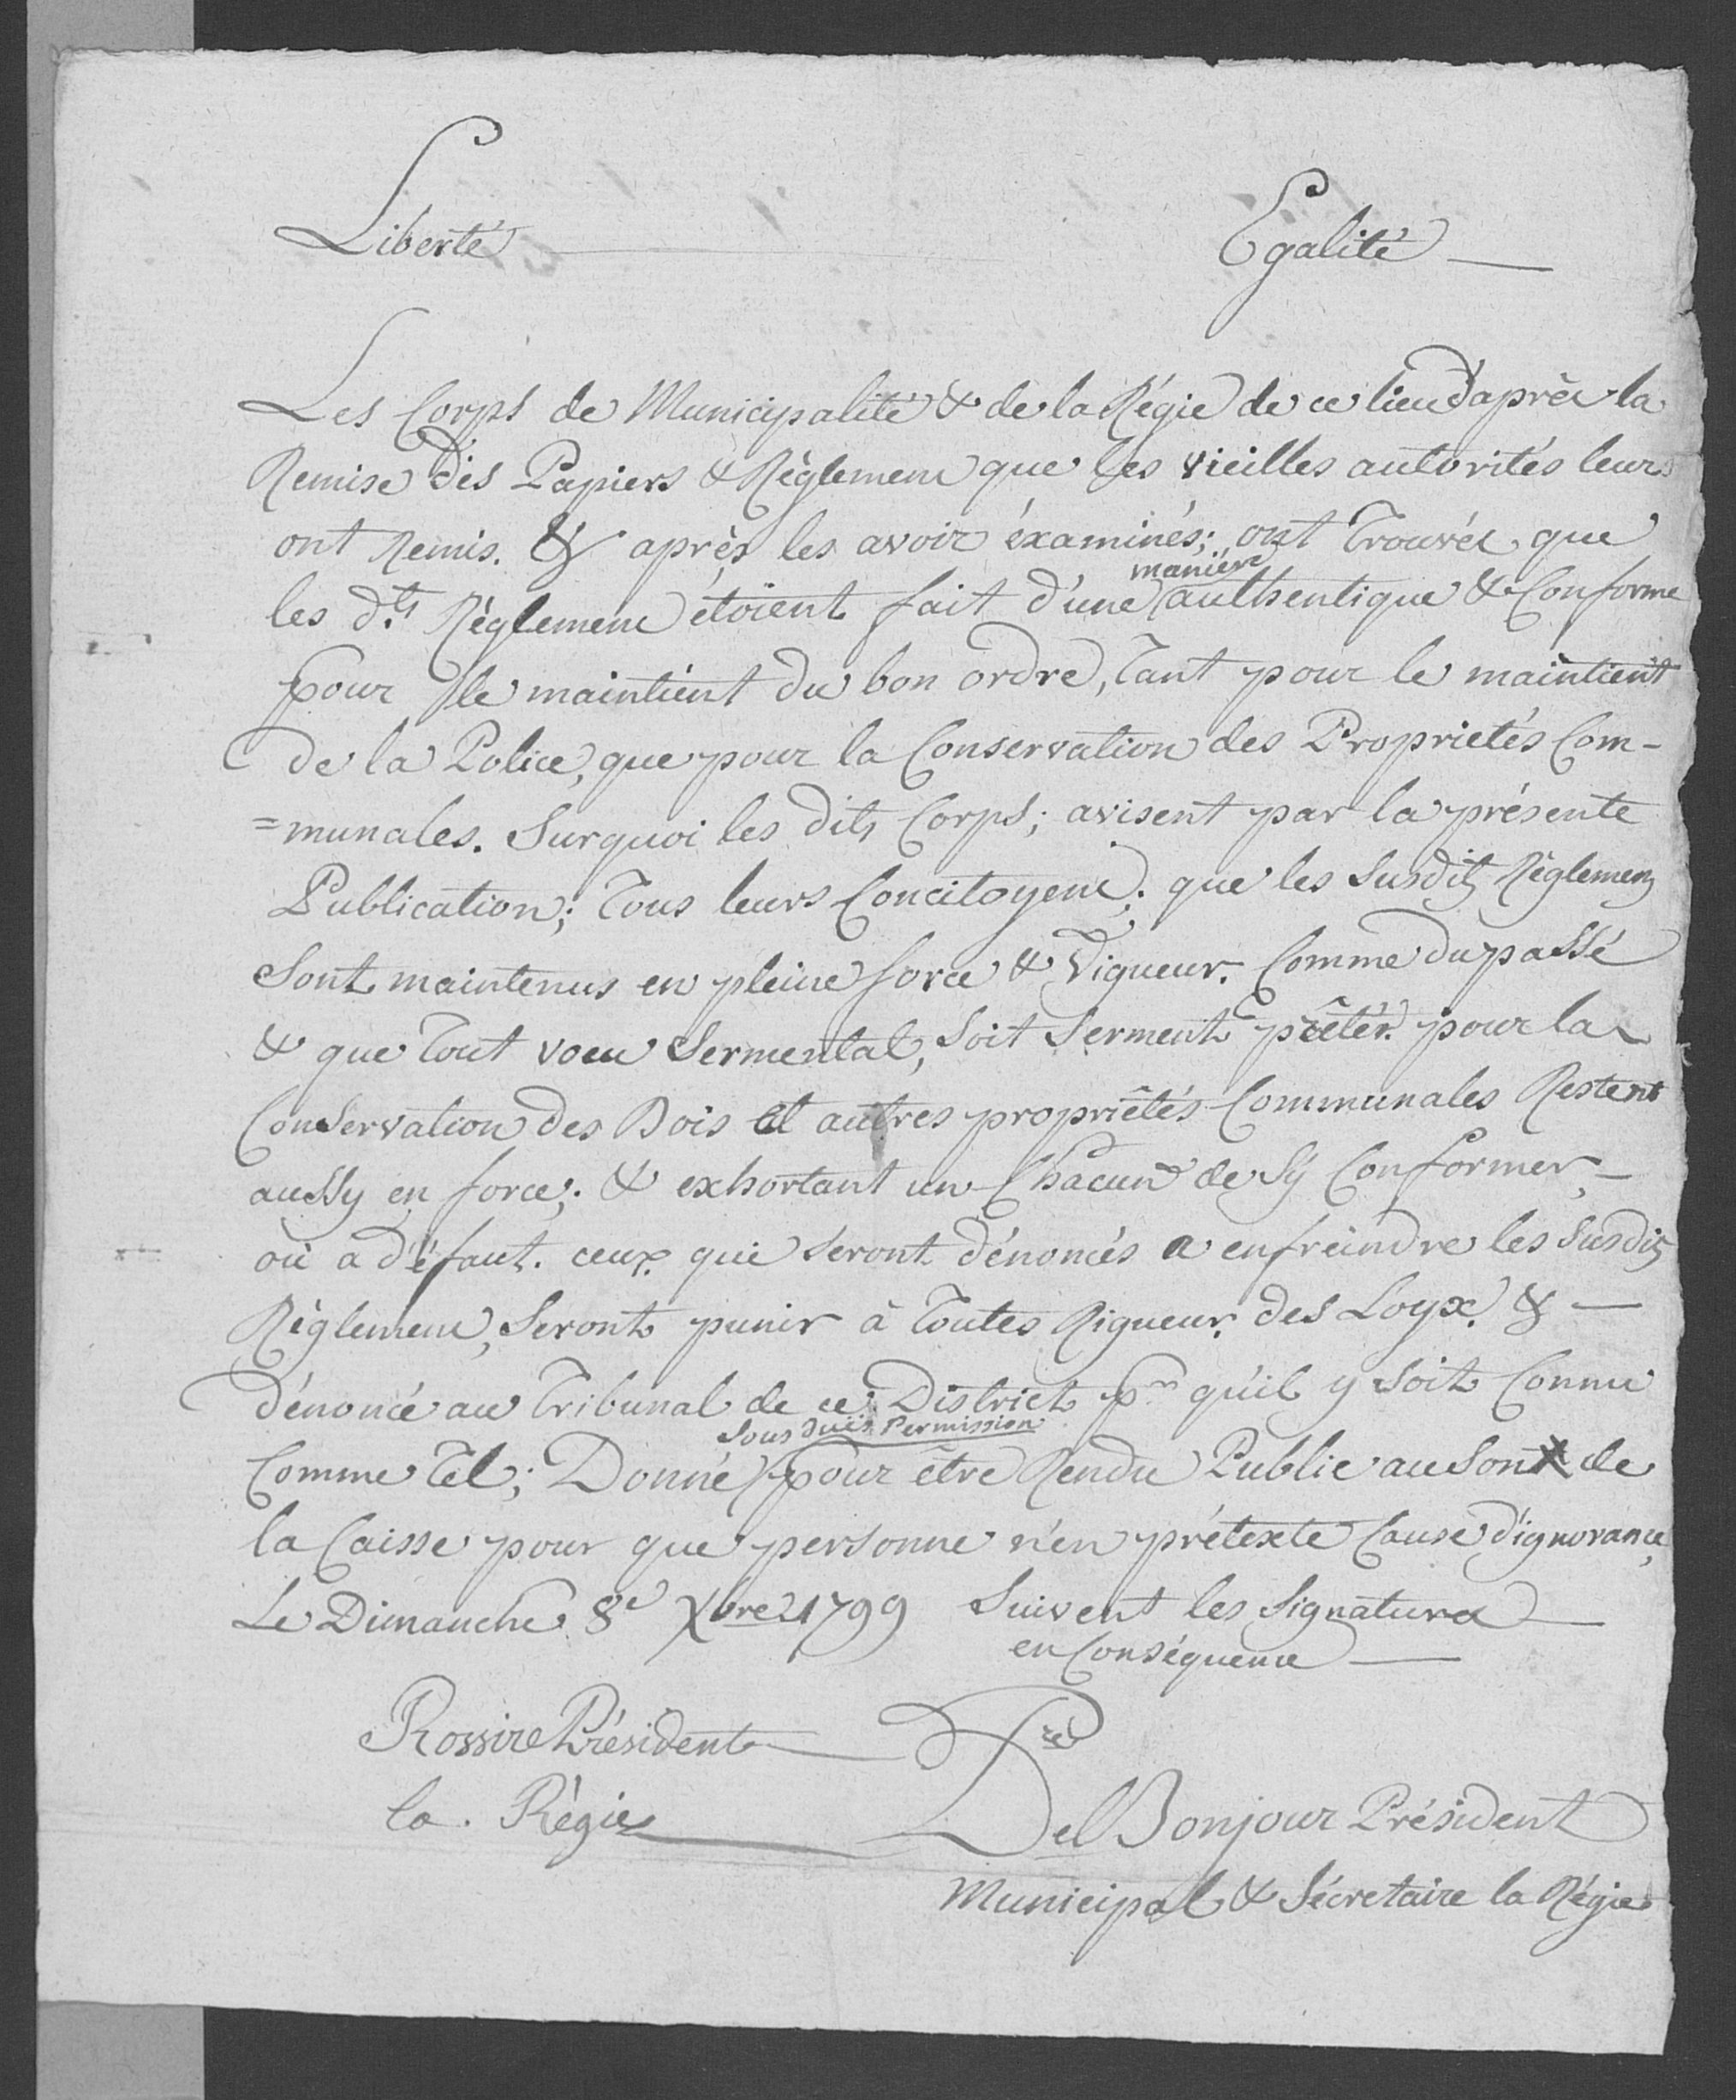 Liberté Egalité
Les Corps de Municipalité & de la Régie de ce lieu d'après la
Remise des Papiers & Règlemens que les vieilles autorités leurs
ont Remis. & après les avoir éxaminés; ont Trouvés que
manière
les d.ts Règlemens étoient fait d'une authentique & Conforme
pour le maintient du bon ordre, Tant pour le maintient
de la Police, que pour la Conservation des Proprietés Com-
=munales. Surquoi les dits Corps; avisent par la présente
Publication; Tous leurs Concitoyens; que les Susdits Règlemens
Sont maintenus en pleine force & Vigueur. Comme du passé
& que Tout voeu Sermental, Soit Serments prêtér. pour la
Conservation des Bois et autres propriêtés Communales Restent
aussy en force; & exhortant un Chacun de Sÿ Conformer,
où a déffaut. ceux qui seront dénoncés a enfreindre les Susdits
Règlemens, Seronts punir à Toutes Rigueur. des Loyx. &
dénoncé au Tribunal de ce District pr qu'il y soit Connu
Sous Permission
Comme Tel; Donné pour être Rendu Public au Son de
la Caisse pour que personne n'en prétexte Cause d'ignorance,
Le Dimanche 8e Xbre 1799 Suivent les Signatures
en Conséquence
Rossire Président
la Régie
Del Bonjour Président
Municipal & Sécretaire la Régie